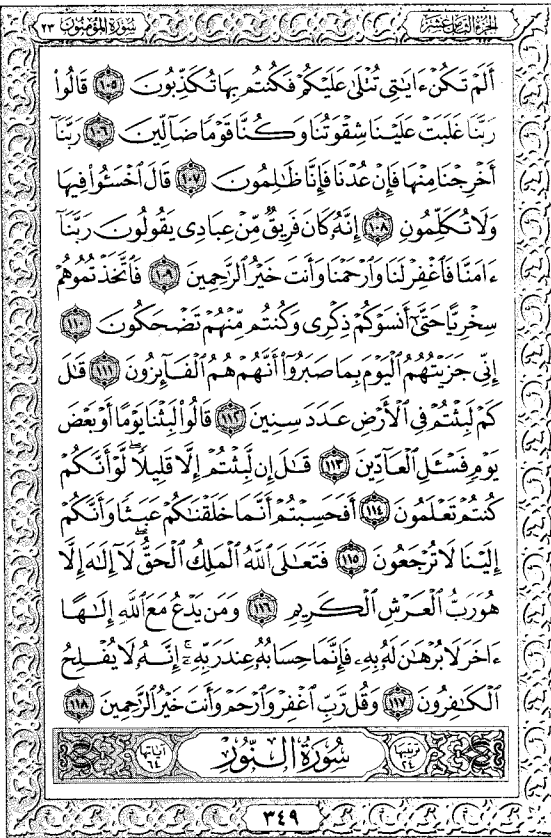 سُورَةُ المُؤْمِنُونَ ٢٣
الجُزْءُ الثَّامِنَ عَشَرَ
أَلَمۡ تَكُنۡ ءَايَٰتِي تُتۡلَىٰ عَلَيۡكُمۡ فَكُنتُم بِهَا تُكَذِّبُونَ ١٠٥ قَالُواْ
رَبَّنَا غَلَبَتۡ عَلَيۡنَا شِقۡوَتُنَا وَكُنَّا قَوۡمٗا ضَآلِّينَ ١٠٦ رَبَّنَآ
أَخۡرِجۡنَا مِنۡهَا فَإِنۡ عُدۡنَا فَإِنَّا ظَٰلِمُونَ ١٠٧ قَالَ ٱخۡسَـُٔواْ فِيهَا
وَلَا تُكَلِّمُونِ ١٠٨ إِنَّهُۥ كَانَ فَرِيقٞ مِّنۡ عِبَادِي يَقُولُونَ رَبَّنَآ
ءَامَنَّا فَٱغۡفِرۡ لَنَا وَٱرۡحَمۡنَا وَأَنتَ خَيۡرُ ٱلرَّٰحِمِينَ ١٠٩ فَٱتَّخَذۡتُمُوهُمۡ
سِخۡرِيًّا حَتَّىٰٓ أَنسَوۡكُمۡ ذِكۡرِي وَكُنتُم مِّنۡهُمۡ تَضۡحَكُونَ ١١٠
إِنِّي جَزَيۡتُهُمُ ٱلۡيَوۡمَ بِمَا صَبَرُوٓاْ أَنَّهُمۡ هُمُ ٱلۡفَآئِزُونَ ١١١ قَٰلَ
كَمۡ لَبِثۡتُمۡ فِي ٱلۡأَرۡضِ عَدَدَ سِنِينَ ١١٢ قَالُواْ لَبِثۡنَا يَوۡمًا أَوۡ بَعۡضَ
يَوۡمٖ فَسۡـَٔلِ ٱلۡعَآدِّينَ ١١٣ قَٰلَ إِن لَّبِثۡتُمۡ إِلَّا قَلِيلٗاۖ لَّوۡ أَنَّكُمۡ
كُنتُمۡ تَعۡلَمُونَ ١١٤ أَفَحَسِبۡتُمۡ أَنَّمَا خَلَقۡنَٰكُمۡ عَبَثٗا وَأَنَّكُمۡ
إِلَيۡنَا لَا تُرۡجَعُونَ ١١٥ فَتَعَٰلَى ٱللَّهُ ٱلۡمَلِكُ ٱلۡحَقُّۖ لَآ إِلَٰهَ إِلَّا
هُوَ رَبُّ ٱلۡعَرۡشِ ٱلۡكَرِيمِ ١١٦ وَمَن يَدۡعُ مَعَ ٱللَّهِ إِلَٰهًا
ءَاخَرَ لَا بُرۡهَٰنَ لَهُۥ بِهِۦ فَإِنَّمَا حِسَابُهُۥ عِندَ رَبِّهِۦٓۚ إِنَّهُۥ لَا يُفۡلِحُ
ٱلۡكَٰفِرُونَ ١١٧ وَقُل رَّبِّ ٱغۡفِرۡ وَٱرۡحَمۡ وَأَنتَ خَيۡرُ ٱلرَّٰحِمِينَ ١١٨
ترتيبها ٢٤ سُورَةُ النُّورِ آياتها ٦٤
٣٤٩